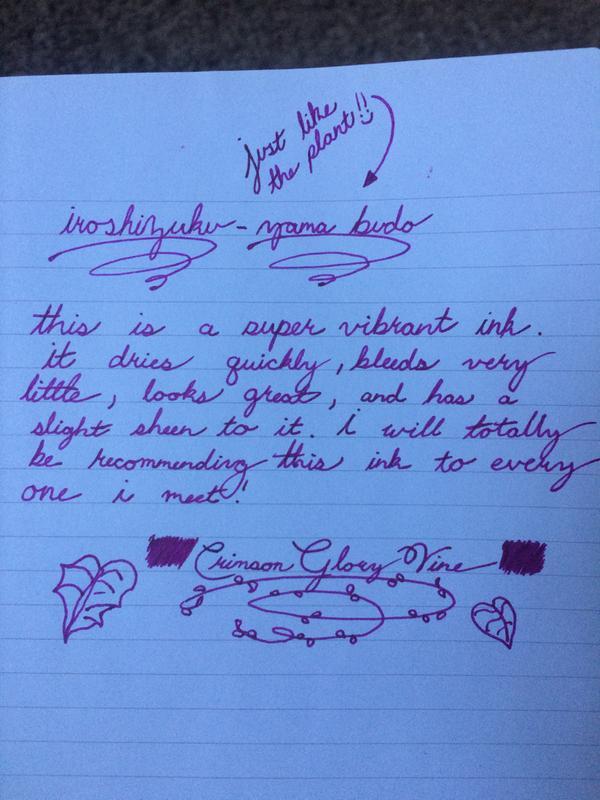 just like
the plant!!
iroshizuku - yama budo
this is a super vibrant ink.
it dries quickly, bleeds very
little, looks great, and has a
slight sheen to it. i will totally
be recommending this ink to every
one i meet!
Crimson Glory Vine